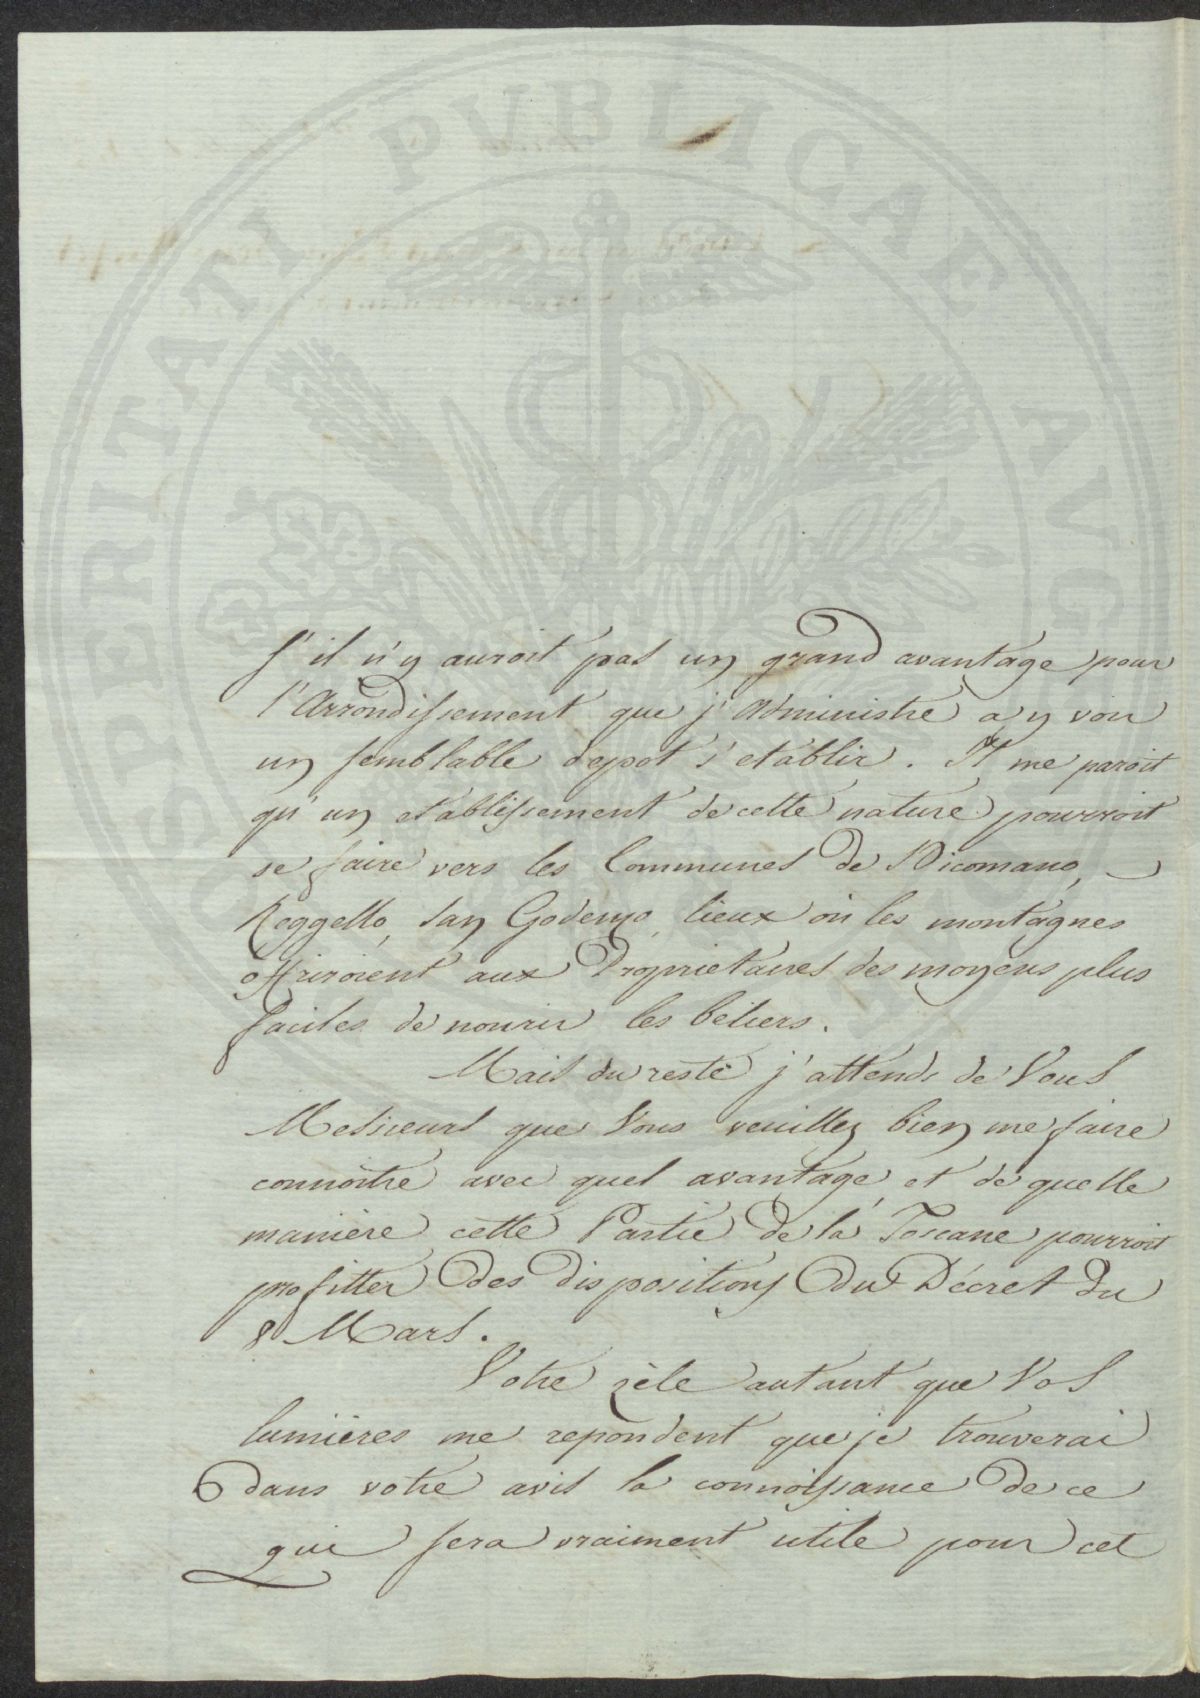 PROSPERITATI PVBLICAE AVGENDAE
S'il n'y auroit pas un grand avantage pour
l'Arrondissement que j'Administre a y voir
un semblable depot s'etablir. Il me paroit
qu'un etablissement de cette nature pourroit
se faire vers les Communes de Dicomano,
Reggello, San Godenzo, lieux où les montagnes
offriroient aux Proprietaires des moyens plus
faciles de nourir les béliers.
Mais du reste j'attends de Vous
Messieurs que Vous veuillez bien me faire
connoitre avec quel avantage, et de quelle
manière cette Partie de la Toscane pourroit
profitter des dispositions du Décret du
8 Mars.
Votre zèle autant que Vos
lumières me repondent que je trouverai
dans votre avis la connoissance de ce
qui sera vraiment utile pour cet